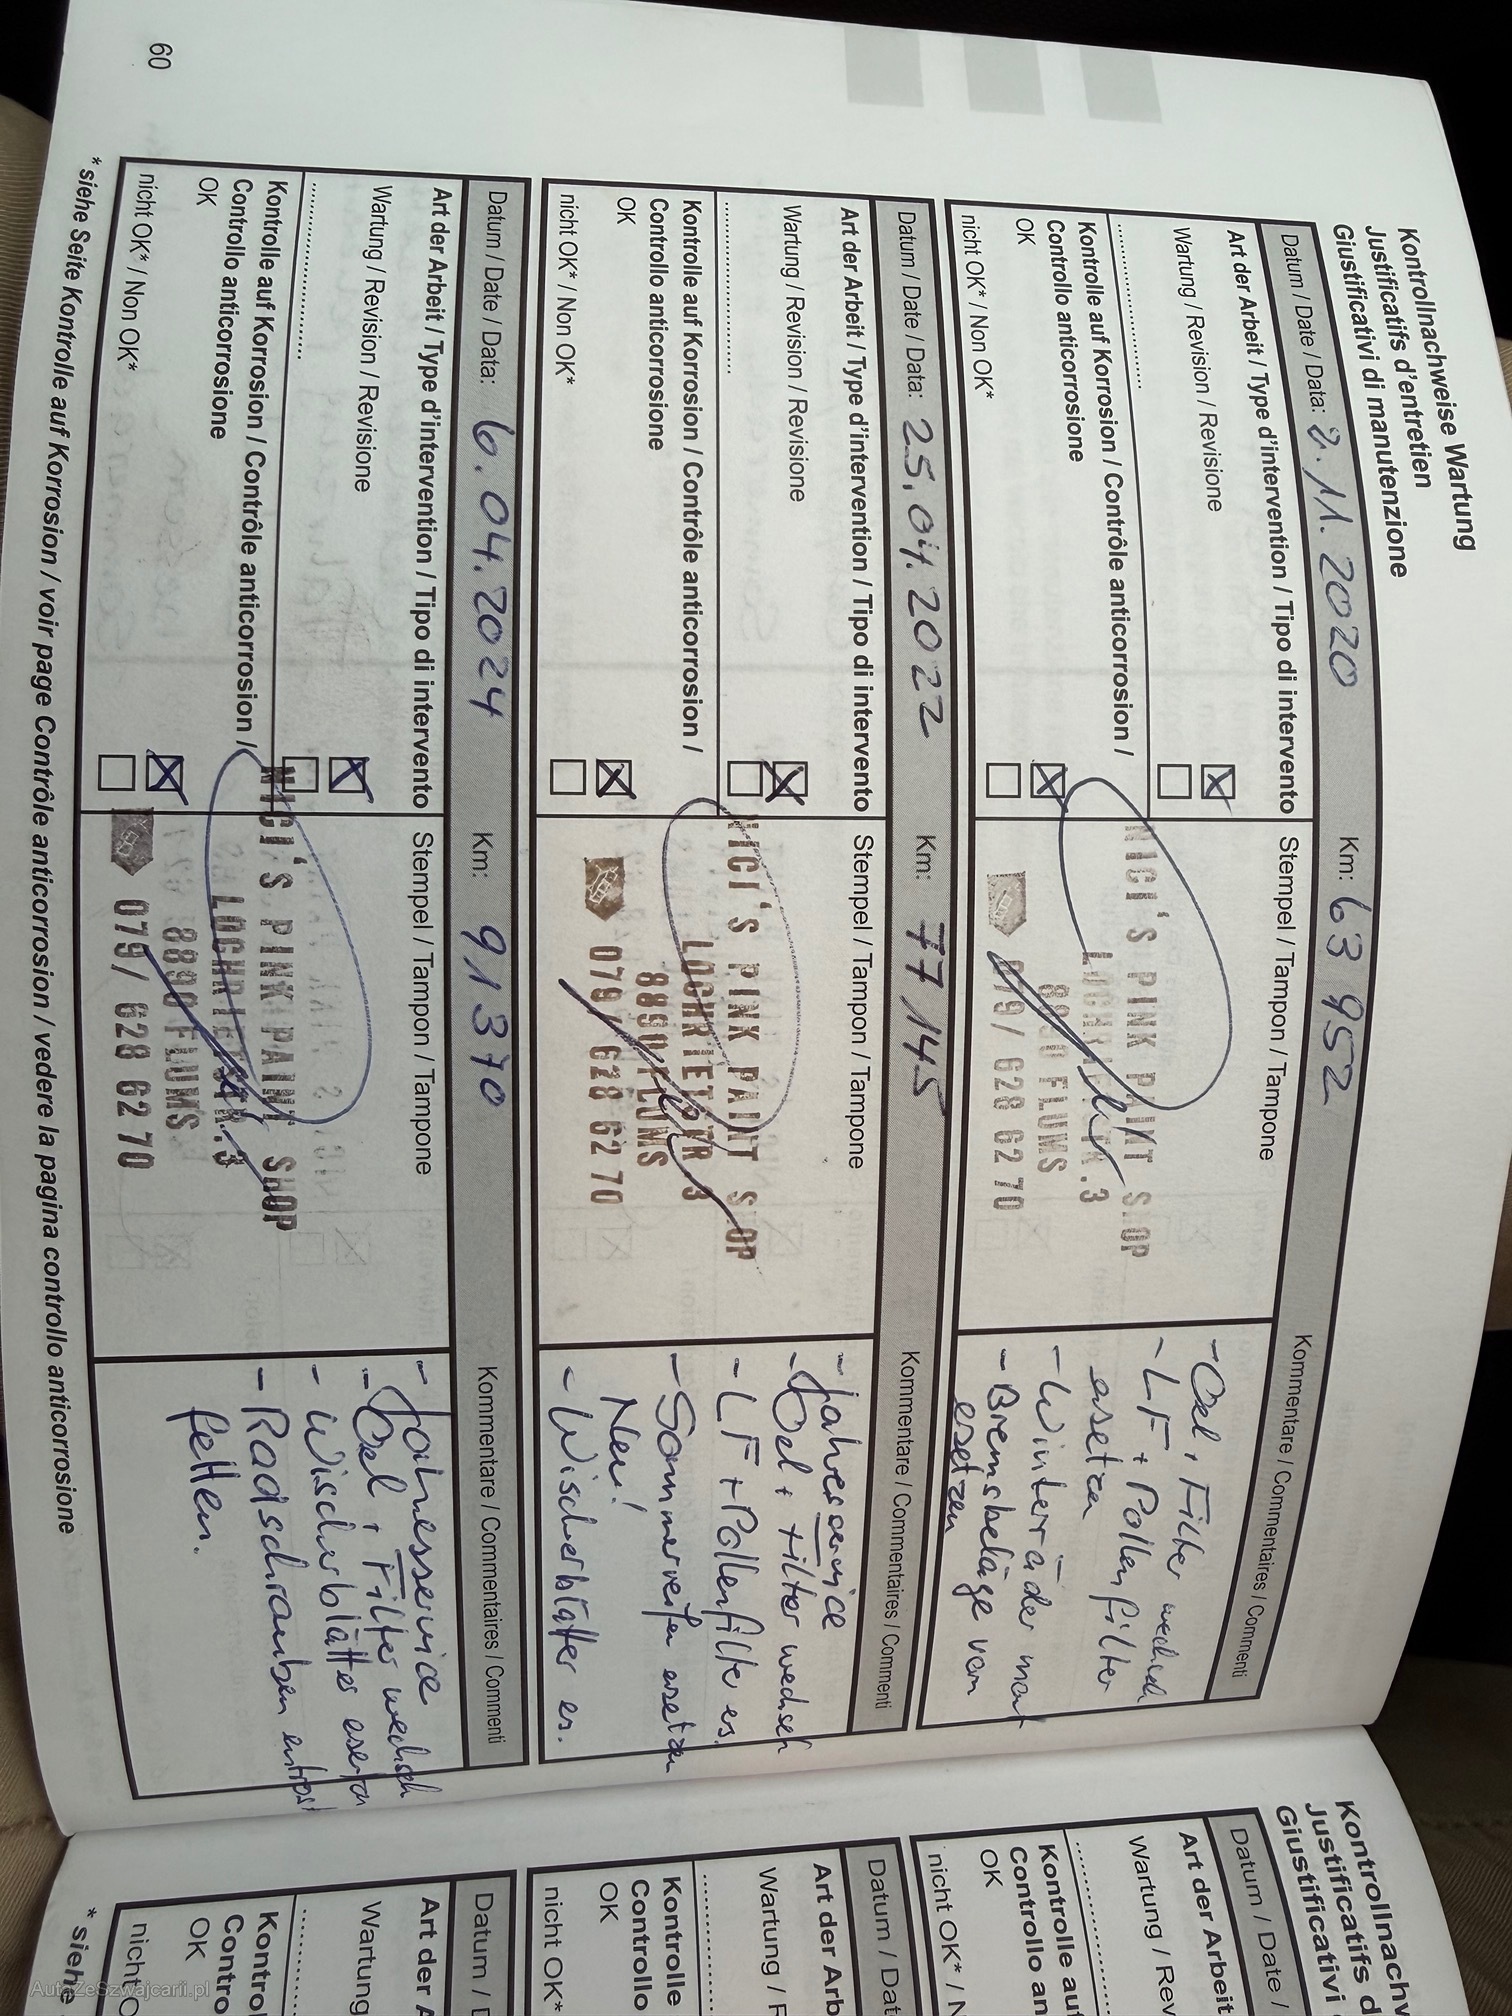 Kontrollnachweise Wartung
Justificatifs d'entretien
Giustificativi di manutenzione
Datum / Date / Data: 2.11.2020 Km: 63 952 Kommentare / Commentaires / Commenti
Art der Arbeit / Type d'intervention / Tipo di intervento Stempel / Tampon / Tampone
Wartung / Revision / Revisione
Kontrolle auf Korrosion / Contrôle anticorrosion /
Controllo anticorrosione
OK
nicht OK* / Non OK*
NICI'S PINK PAINT SHOP
LOCHRIETSTR.3
8890 FLUMS
079/ 628 62 70
- Oel + Filter
- LF + Pollenfilter
ersetzen
- Winterräder mont
- Bremsbeläge vorn
ersetzen
Datum / Date / Data: 25.04.2022 Km: 77 145 Kommentare / Commentaires / Commenti
Art der Arbeit / Type d'intervention / Tipo di intervento Stempel / Tampon / Tampone
Wartung / Revision / Revisione
Kontrolle auf Korrosion / Contrôle anticorrosion /
Controllo anticorrosione
OK
nicht OK* / Non OK*
NICI'S PINK PAINT SHOP
LOCHRIETSTR.3
8890 FLUMS
079/ 628 62 70
- Jahresservice
- Oel + Filter wechsel
- LF + Pollenfilter es.
- Sommerreifen ersetzen
Neu!
- Wischerblätter es.
Datum / Date / Data: 6.04.2024 Km: 91 370 Kommentare / Commentaires / Commenti
Art der Arbeit / Type d'intervention / Tipo di intervento Stempel / Tampon / Tampone
Wartung / Revision / Revisione
Kontrolle auf Korrosion / Contrôle anticorrosion /
Controllo anticorrosione
OK
nicht OK* / Non OK*
NICI'S PINK PAINT SHOP
LOCHRIETSTR.3
8890 FLUMS
079/ 628 62 70
- Jahresservice
- Oel + Filter wechsel
- Wischerblätter ersetzen
- Radschrauben entrost
fetten.
* siehe Seite Kontrolle auf Korrosion / voir page Contrôle anticorrosion / vedere la pagina controllo anticorrosione
60
Kontrollnachw
Justificatifs d
Giustificativi
Datum / Date /
Art der Arbeit
Wartung / Rev
Kontrolle au
Controllo an
OK
nicht OK* / N
Datum / Dat
Art der Arb
Wartung / R
Kontrolle
Controllo
OK
nicht OK*
Datum / D
Art der A
Wartung
Kontrol
Contro
OK
nicht O
* siehe
AutaZeSzwajcarii.pl